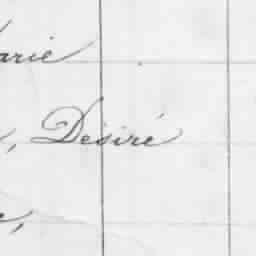 arie
, Désiré
e,